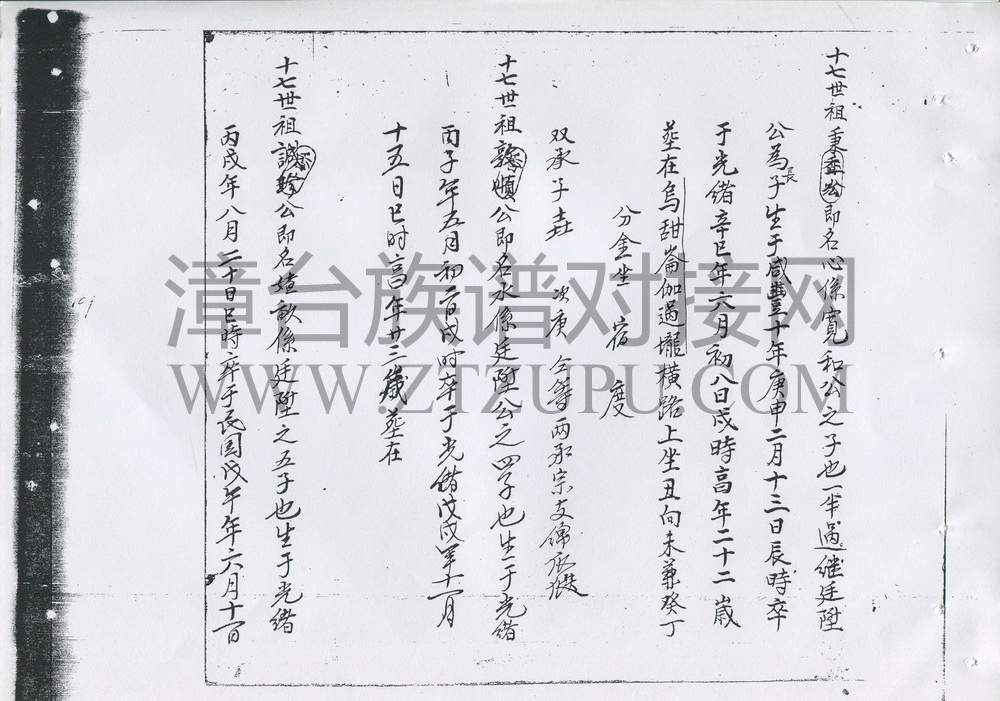 十七世祖秉公即名心係寬和公之子也一半過继廷陞
公為長子生于咸豐十年庚申二月十三日辰時卒
于光緒辛巳年六月初八日戌時高年二十二歲
塟在烏甜崙伽過壠横路上坐丑向未兼癸丁
分金坐 宿 度
双承子壵 次庚 仝等两承宗支
十七世祖敦順公即名水係廷陞公之四子也生于光緒
丙子年五月初二日戌時卒于光緒戊戌年十一月
十五日巳時高年廿三歲塟在
十七世祖諴公即名係廷陞之五子也生于光緒
丙戌年八月二十日巳時卒于民国戊午年六月十一日
漳台族谱对接网
WWW.ZTZUPU.COM